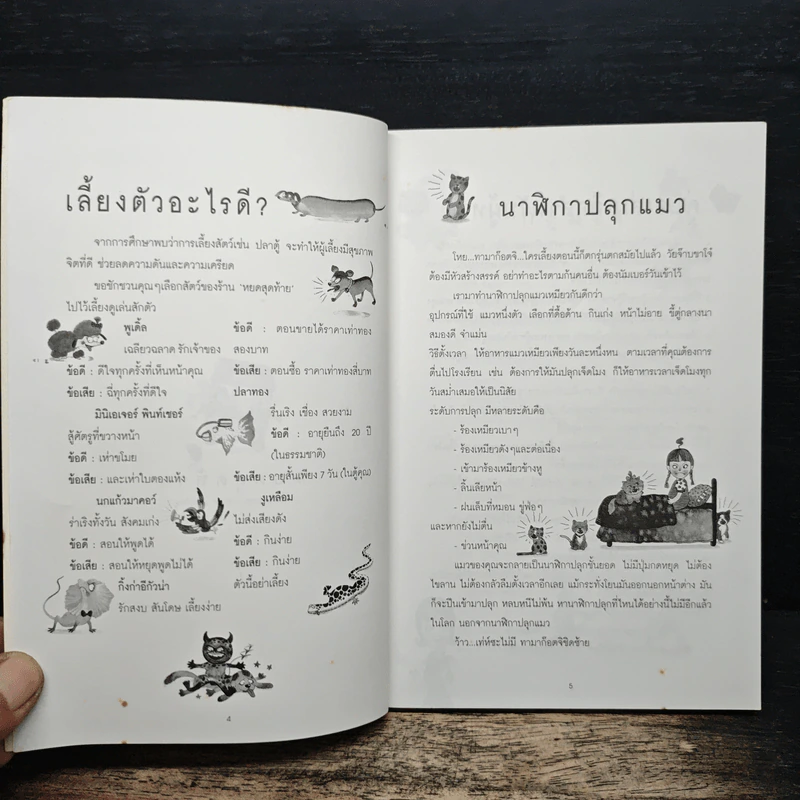 เลี้ยงตัวอะไรดี?
จากการศึกษาพบว่าการเลี้ยงสัตว์เช่น ปลาตู้ จะทำให้ผู้เลี้ยงมีสุขภาพ
จิตที่ดี ช่วยลดความดันและความเครียด
ขอชักชวนคุณๆเลือกสัตว์ของร้าน 'หยดสุดท้าย'
ไปไว้เลี้ยงดูเล่นสักตัว
พูเดิ้ล
เฉลียวฉลาด รักเจ้าของ
ข้อดี : ดีใจทุกครั้งที่เห็นหน้าคุณ
ข้อเสีย : ฉี่ทุกครั้งที่ดีใจ
มินิเอเจอร์ พินท์เชอร์
สู้ศัตรูที่ขวางหน้า
ข้อดี : เห่าขโมย
ข้อเสีย : และเห่าใบตองแห้ง
นกแก้วมาคอว์
ร่าเริงทั้งวัน สังคมเก่ง
ข้อดี : สอนให้พูดได้
ข้อเสีย : สอนให้หยุดพูดไม่ได้
กิ้งก่าอีกัวน่า
รักสงบ สันโดษ เลี้ยงง่าย
ข้อดี : ตอนขายได้ราคาเท่าทอง
สองบาท
ข้อเสีย : ตอนซื้อ ราคาเท่าทองสี่บาท
ปลาทอง
รื่นเริง เชื่อง สวยงาม
ข้อดี : อายุยืนถึง 20 ปี
(ในธรรมชาติ)
ข้อเสีย : อายุสั้นเพียง 7 วัน (ในตู้คุณ)
งูเหลือม
ไม่ส่งเสียงดัง
ข้อดี : กินง่าย
ข้อเสีย : กินง่าย
ตัวนี้อย่าเลี้ยง
4
นาฬิกาปลุกแมว
โหย...ทามาก๊อตจิ...ใครเลี้ยงตอนนี้ก็ตกรุ่นตกสมัยไปแล้ว วัยจ๊าบซาโจ๋
ต้องมีหัวสร้างสรรค์ อย่าทำอะไรตามก้นคนอื่น ต้องนัมเบอร์วันเข้าไว้
เรามาทำนาฬิกาปลุกแมวเหมียวกันดีกว่า
อุปกรณ์ที่ใช้ แมวหนึ่งตัว เลือกที่ดื้อด้าน กินเก่ง หน้าไม่อาย ขี้ตู่กลางนา
สมองดี จำแม่น
วิธีตั้งเวลา ให้อาหารแมวเหมียวเพียงวันละหนึ่งหน ตามเวลาที่คุณต้องการ
ตื่นไปโรงเรียน เช่น ต้องการให้มันปลุกเจ็ดโมง ก็ให้อาหารเวลาเจ็ดโมงทุก
วันสม่ำเสมอให้เป็นนิสัย
ระดับการปลุก มีหลายระดับคือ
- ร้องเหมียวเบาๆ
- ร้องเหมียวดังๆและต่อเนื่อง
- เข้ามาร้องเหมียวข้างหู
- ลิ้นเลียหน้า
- ฝนเล็บที่หมอน ขู่ฟ่อๆ
และหากยังไม่ตื่น
- ข่วนหน้าคุณ
แมวของคุณจะกลายเป็นนาฬิกาปลุกชั้นยอด ไม่มีปุ่มกดหยุด ไม่ต้อง
ไขลาน ไม่ต้องกลัวลืมตั้งเวลาอีกเลย แม้กระทั่งโยนมันออกนอกหน้าต่าง มัน
ก็จะปีนเข้ามาปลุก หลบหนีไม่พ้น หานาฬิกาปลุกที่ไหนได้อย่างนี้ไม่มีอีกแล้ว
ในโลก นอกจากนาฬิกาปลุกแมว
ว้าว...เท่ห์ซะไม่มี ทามาก๊อตจิชิดซ้าย
5